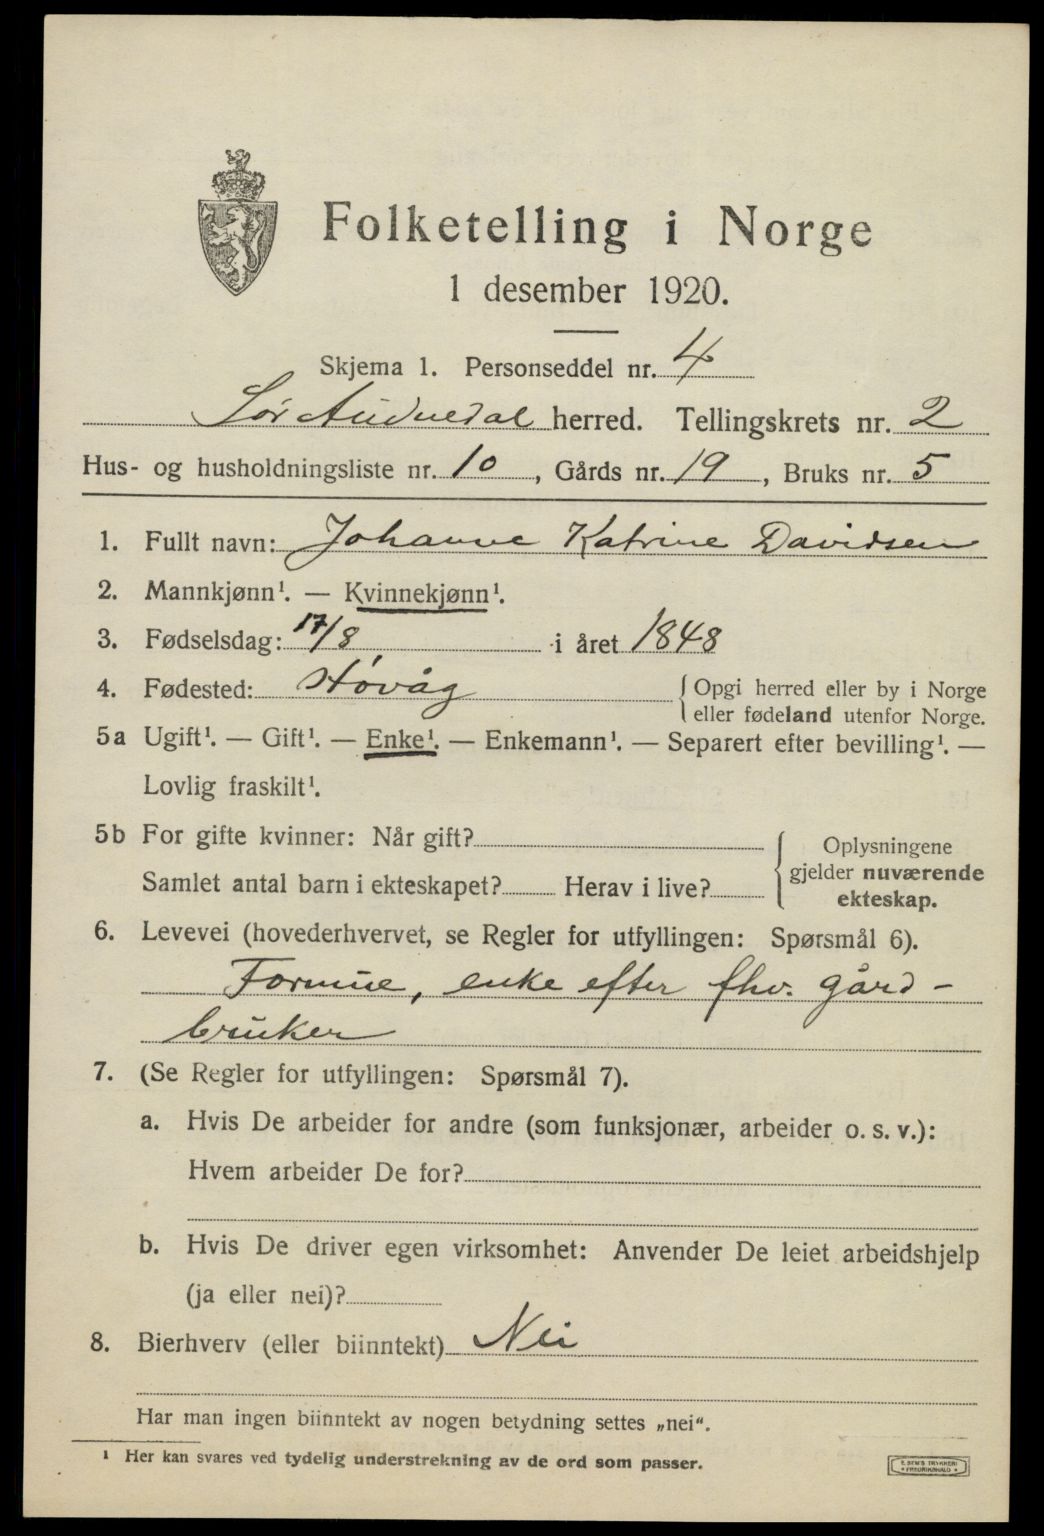 Folketelling i Norge
1 desember 1920.
Skjema 1. Personseddel nr. 4
Sør Audnedal herred. Tellingskrets nr. 2
Hus- og husholdningsliste nr. 10, Gårds nr. 19, Bruks nr. 5
1. Fullt navn: Johanne Katrine Davidsen
2. Mannkjønn¹. — Kvinnekjønn¹.
3. Fødselsdag: 17/8 i året 1848
4. Fødested: Høvåg {Opgi herred eller by i Norge
eller fødeland utenfor Norge.
5a Ugift¹. — Gift¹. — Enke¹. — Enkemann¹. — Separert efter bevilling¹. —
Lovlig fraskilt¹.
5b For gifte kvinner: Når gift?
Samlet antal barn i ekteskapet? Herav i live?
{Oplysningene
gjelder nuværende
ekteskap.
6. Levevei (hovederhvervet, se Regler for utfyllingen: Spørsmål 6).
Formue, enke efter fhv. gård-
bruker
7. (Se Regler for utfyllingen: Spørsmål 7).
a. Hvis De arbeider for andre (som funksjonær, arbeider o. s. v.):
Hvem arbeider De for?
b. Hvis De driver egen virksomhet: Anvender De leiet arbeidshjelp
(ja eller nei)?
8. Bierhverv (eller biinntekt) Nei
Har man ingen biinntekt av nogen betydning settes „nei“.
¹ Her kan svares ved tydelig understrekning av de ord som passer.
E. SEM'S TRYKKERI
• FREDRIKSHALD •